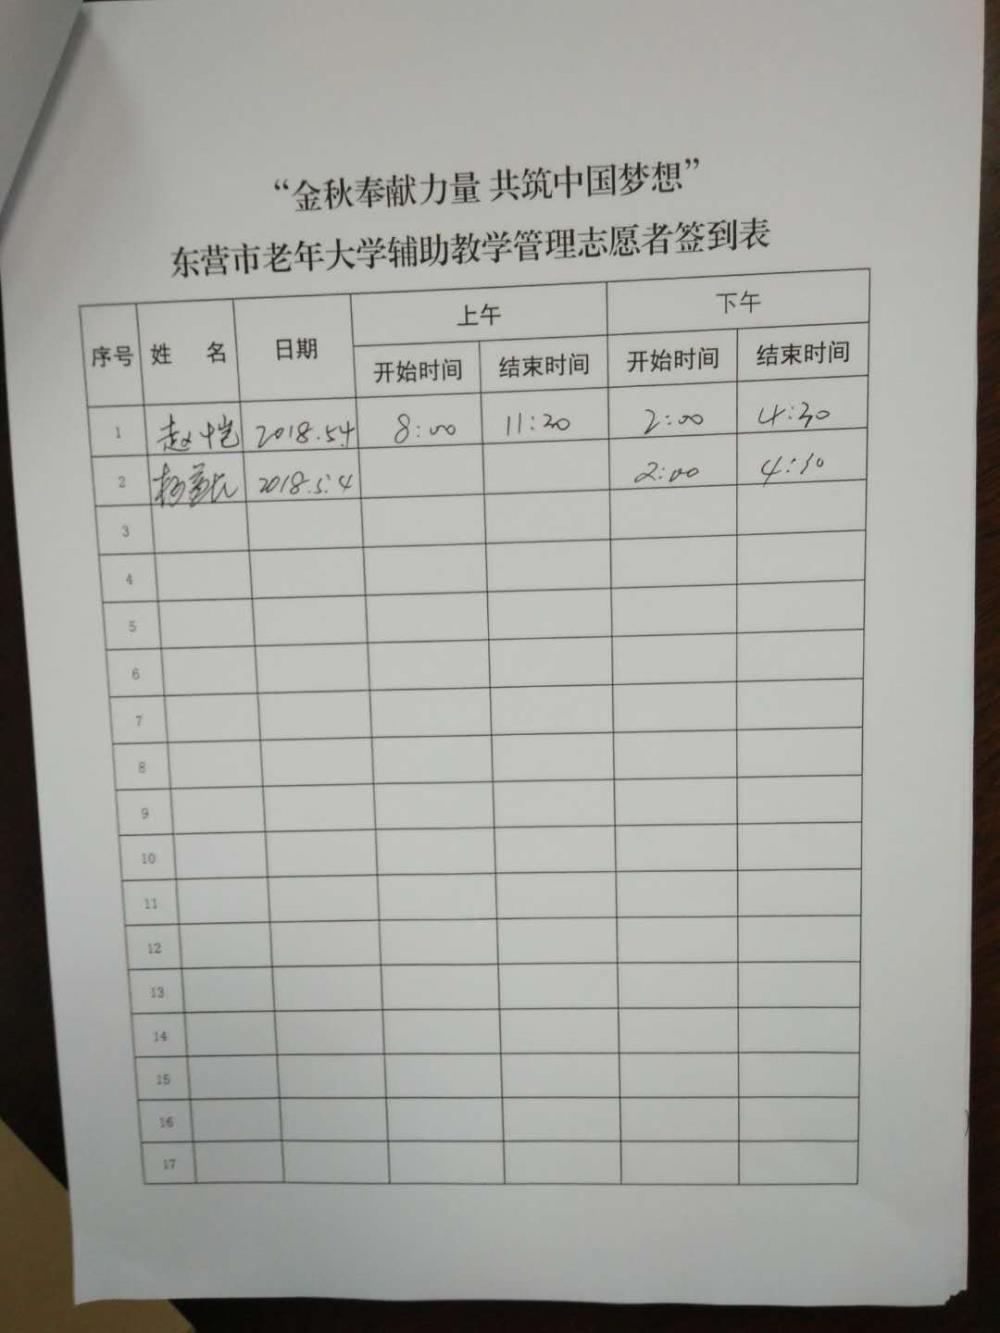 “金秋奉献力量 共筑中国梦想”
东营市老年大学辅助教学管理志愿者签到表
序号 姓 名 日期 上午 下午
开始时间 结束时间 开始时间 结束时间
1 赵 2018.5.4 8:00 11:30 2:00 4:30
2 杨 2018.5.4 2:00 4:30
3
4
5
6
7
8
9
10
11
12
13
14
15
16
17